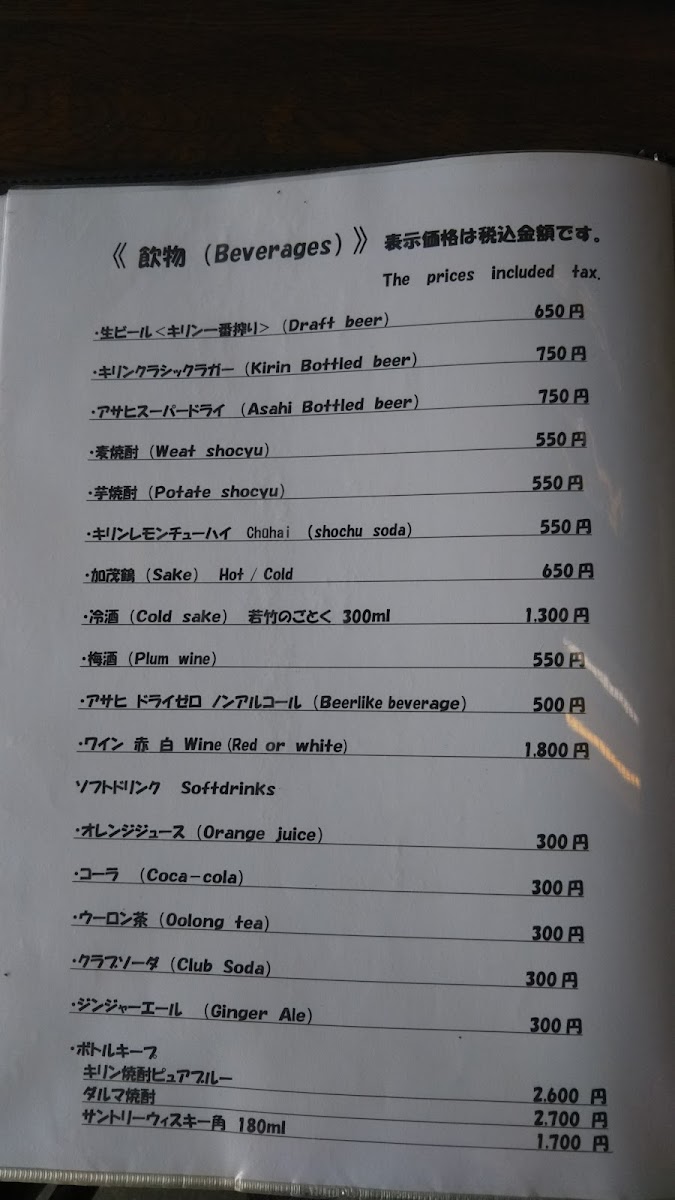 《 飲物 (Beverages) 》 表示価格は税込金額です。
The prices included tax.
・生ビール<キリン一番搾り> (Draft beer) 650円
・キリンクラシックラガー (Kirin Bottled beer) 750円
・アサヒスーパードライ (Asahi Bottled beer) 750円
・麦焼酎 (Weat shocyu) 550円
・芋焼酎 (Potate shocyu) 550円
・キリンレモンチューハイ Chūhai (shochu soda) 550円
・加茂鶴 (Sake) Hot / Cold 650円
・冷酒 (Cold sake) 若竹のごとく 300ml 1.300円
・梅酒 (Plum wine) 550円
・アサヒ ドライゼロ ノンアルコール (Beerlike beverage) 500円
・ワイン 赤 白 Wine (Red or white) 1,800円
ソフトドリンク Softdrinks
・オレンジジュース (Orange juice) 300円
・コーラ (Coca-cola) 300円
・ウーロン茶 (Oolong tea) 300円
・クラブソーダ (Club Soda) 300円
・ジンジャーエール (Ginger Ale) 300円
・ボトルキープ
キリン焼酎ピュアブルー 2.600 円
ダルマ焼酎 2.700 円
サントリーウィスキー角 180ml 1.700 円